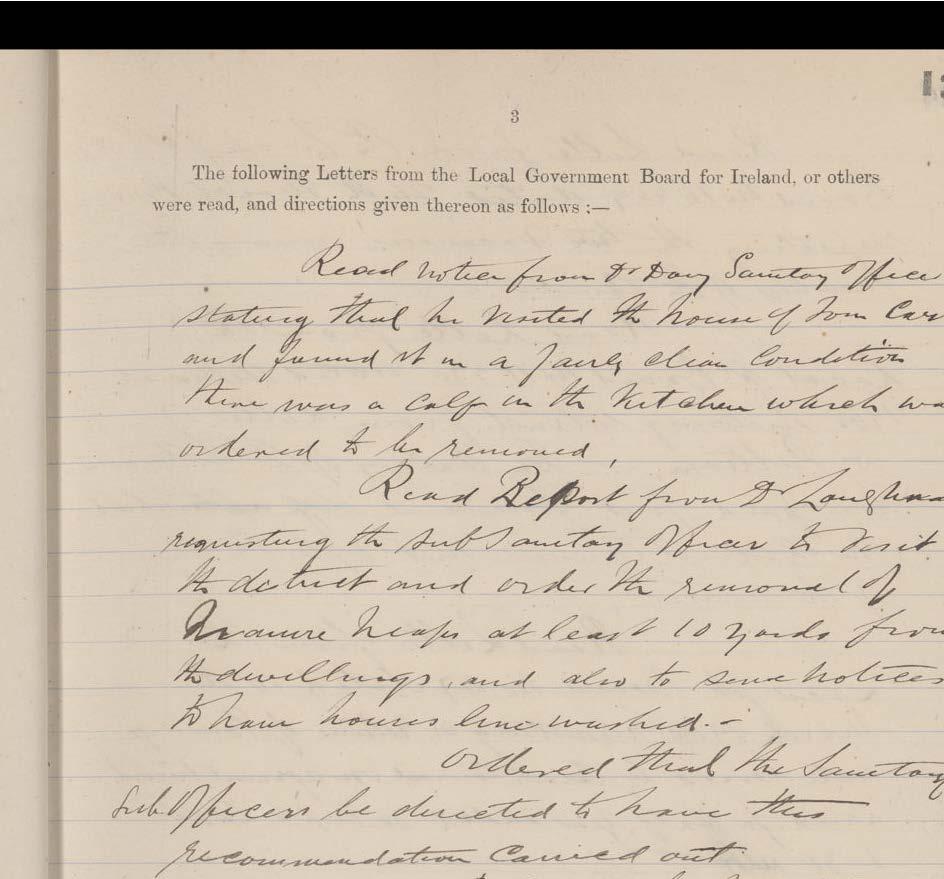 13
3
The following Letters from the Local Government Board for Ireland, or others
were read, and directions given thereon as follows :—
Read notice from Dr Davy Sanitary Officer
stating that he visited the house of Tom
and found it in a fairly clean condition
there was a calf in the Kitchen which wa
ordered to be removed,
Read Report from Dr
requesting the sub Sanitary Officer to visit
the district and order the removal of
Manure heaps at least 10 yards from
the dwellings, and also to serve notices
to have houses lime washed. -
Ordered that the Sanitary
Sub Officers be directed to have this
recommendation carried out